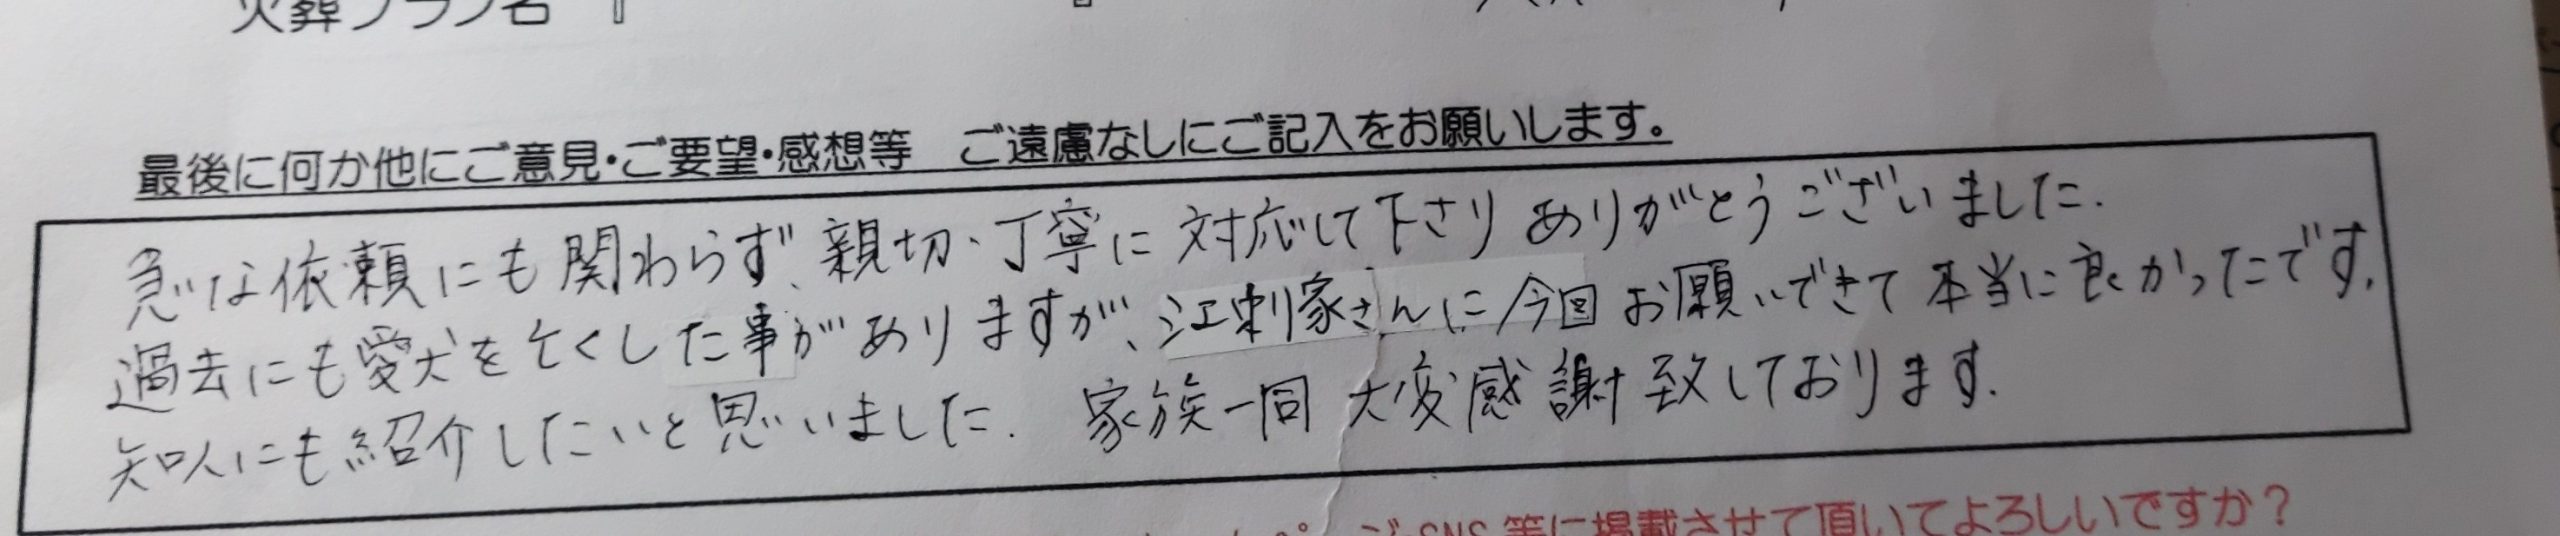 火葬プラン名 『 』
最後に何か他にご意見・ご要望・感想等　ご遠慮なしにご記入をお願いします。
急な依頼にも関わらず、親切・丁寧に対応して下さりありがとうございました.
過去にも愛犬を亡くした事がありますが、江刺家さんに今回お願いできて本当に良かったです.
知人にも紹介したいと思いました. 家族一同 大変感謝致しております.
ページ SNS 等に掲載させて頂いてよろしいですか？